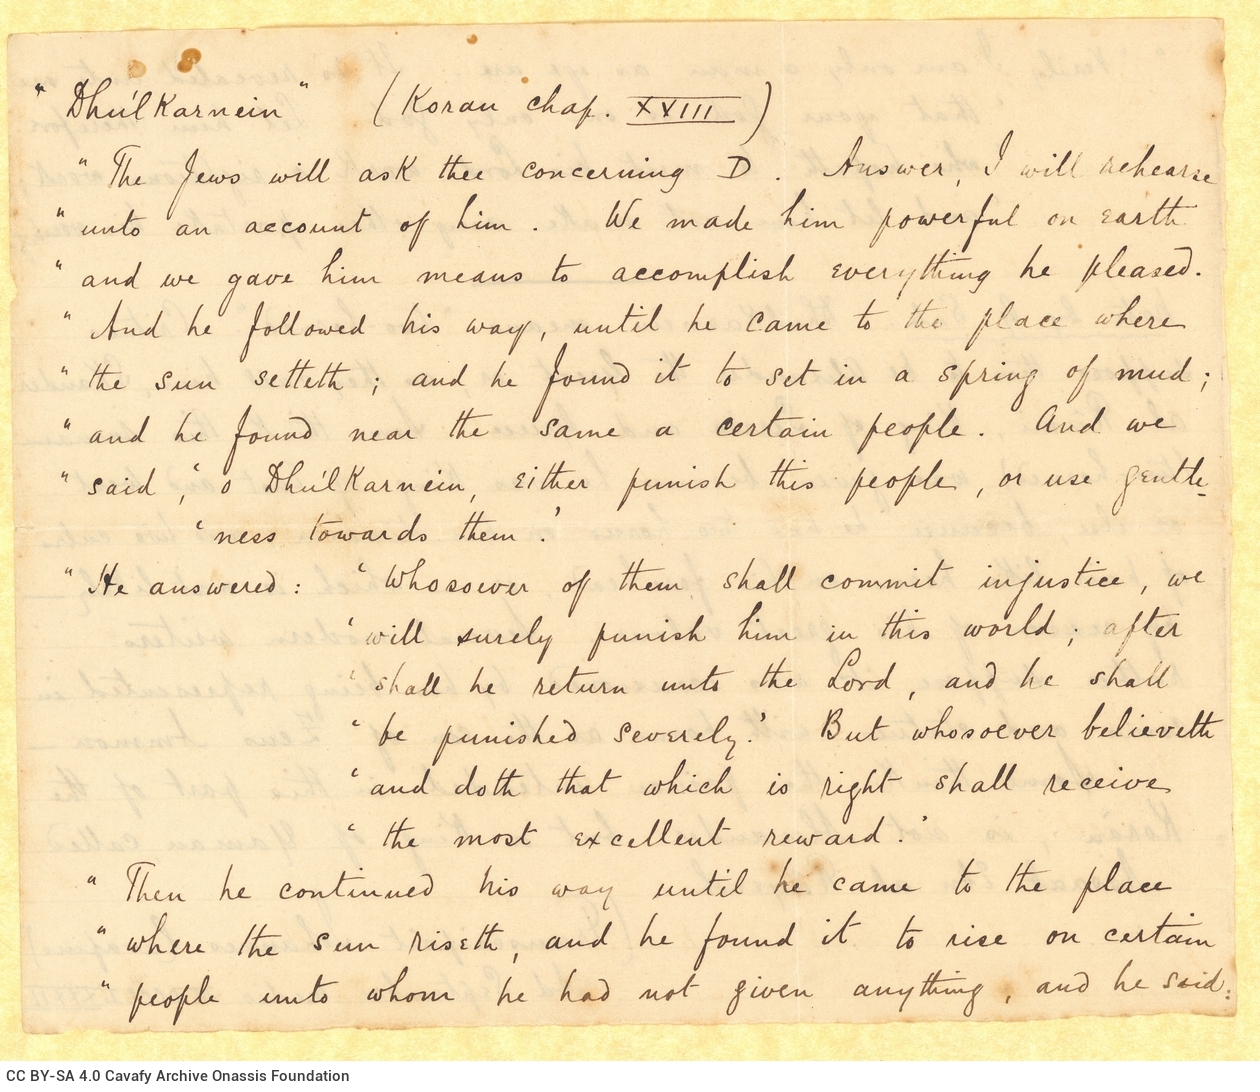 "Dhúl Karnein" (Koran chap. XXIII)
"The Jews will ask thee concerning D. Answer, I will rehearse
"unto an account of him. We made him powerful on earth
"and we gave him means to accomplish everything he pleased.
"And he followed his way, until he came to the place where
"the sun setteth; and he found it to set in a spring of mud;
"and he found near the same a certain people. And we
"said, 'o Dhúl Karnein, either punish this people, or use gentle-
'ness towards them.'
"He answered: 'Whosoever of them shall commit injustice, we
'will surely punish him in this world; after
'shall he return unto the Lord, and he shall
'be punished severely.' But whosoever believeth
'and doth that which is right shall receive
'the most excellent reward.'
"Then he continued his way until he came to the place
"where the sun riseth, and he found it to rise on certain
"people unto whom he had not given anything, and he said:
CC BY-SA 4.0 Cavafy Archive Onassis Foundation